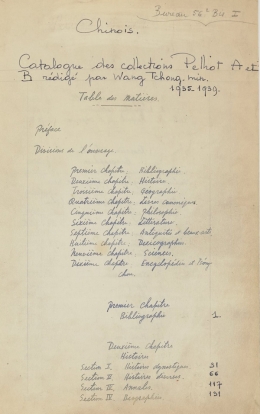 Bureau
Chinois.
Catalogue des collections Pelliot A et
B rédigé par Wang Tchong-min.
1935-1939.
Table des Matières
Préface
Divisions de l'ouvrage
Premier chapitre, Bibliographie.
Deuxième chapitre, Histoire.
Troisième chapitre, Géographie
Quatrième chapitre, Livres canoniques
Cinquième chapitre, Philosophie
Sixième chapitre, Littérature.
Septième chapitre, Antiquités et beaux-arts.
Huitième chapitre,
Neuvième chapitre, Sciences.
Dixième chapitre, Encyclopédies et
Premier chapitre
Bibliographie 1
Deuxième chapitre
Histoire
Section I. Histoire dynastique 31
Section II. Histoire 66
Section III. Annales 117
Section IV. Biographies 131